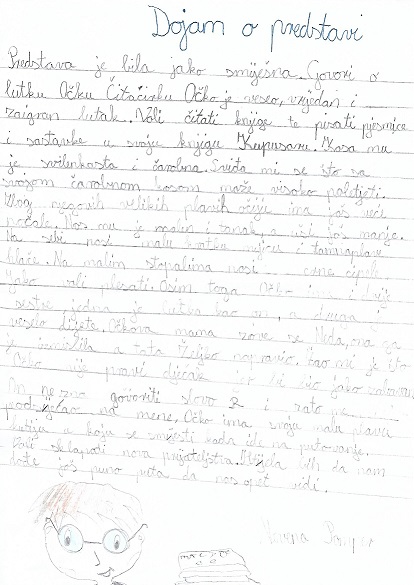 Dojam o predstavi
Predstava je bila jako smiješna. Govori o
lutku Očku Čitačinku. Očko je veseo, vrijedan i
zaigran lutak. Voli čitati knjige te pisati pjesmice
i sastavke u svoju knjigu Kupusaru. Kosa mu
je svilenkasta i čarobna. Sviđa mi se što sa
svojom čarobnom kosom može visoko poletjeti.
Zbog njegovih velikih plavih očiju ima još veće
naočale. Nos mu je malen i tanak, a uši još manje.
Na sebi nosi malu kratku majicu i tamnoplave
hlače. Na malim stopalima nosi crne cipele.
Jako voli plesati. Osim toga Očko ima i dvije
sestre, jedna je lutka kao on, a druga je
veselo dijete. Očkova mama zove se Neda, ona ga
je izmislila a tata Željko napravio. Žao mi je što
Očko nije pravi dječak jer bi bio jako zabavan.
On ne zna govoriti slovo R i zato me
podsjećao na mene. Očko ima svoju malu plavu
kutiju u koju se smjesti kada ide na putovanje.
Voli sklapati nova prijateljstva. Htjela bih da nam
dođe još puno puta da nas opet vidi.